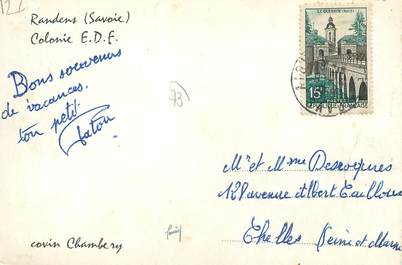 Randens (Savoie)
Colonie E.D.F.
Bons souvenirs
de vacances.
ton petit
LE QUESNOY (Nord)
15F
POSTES
93
Mr et Mme Descoques
128 avenue Albert Caillou
Chelles Seine et Marne
covin Chambery